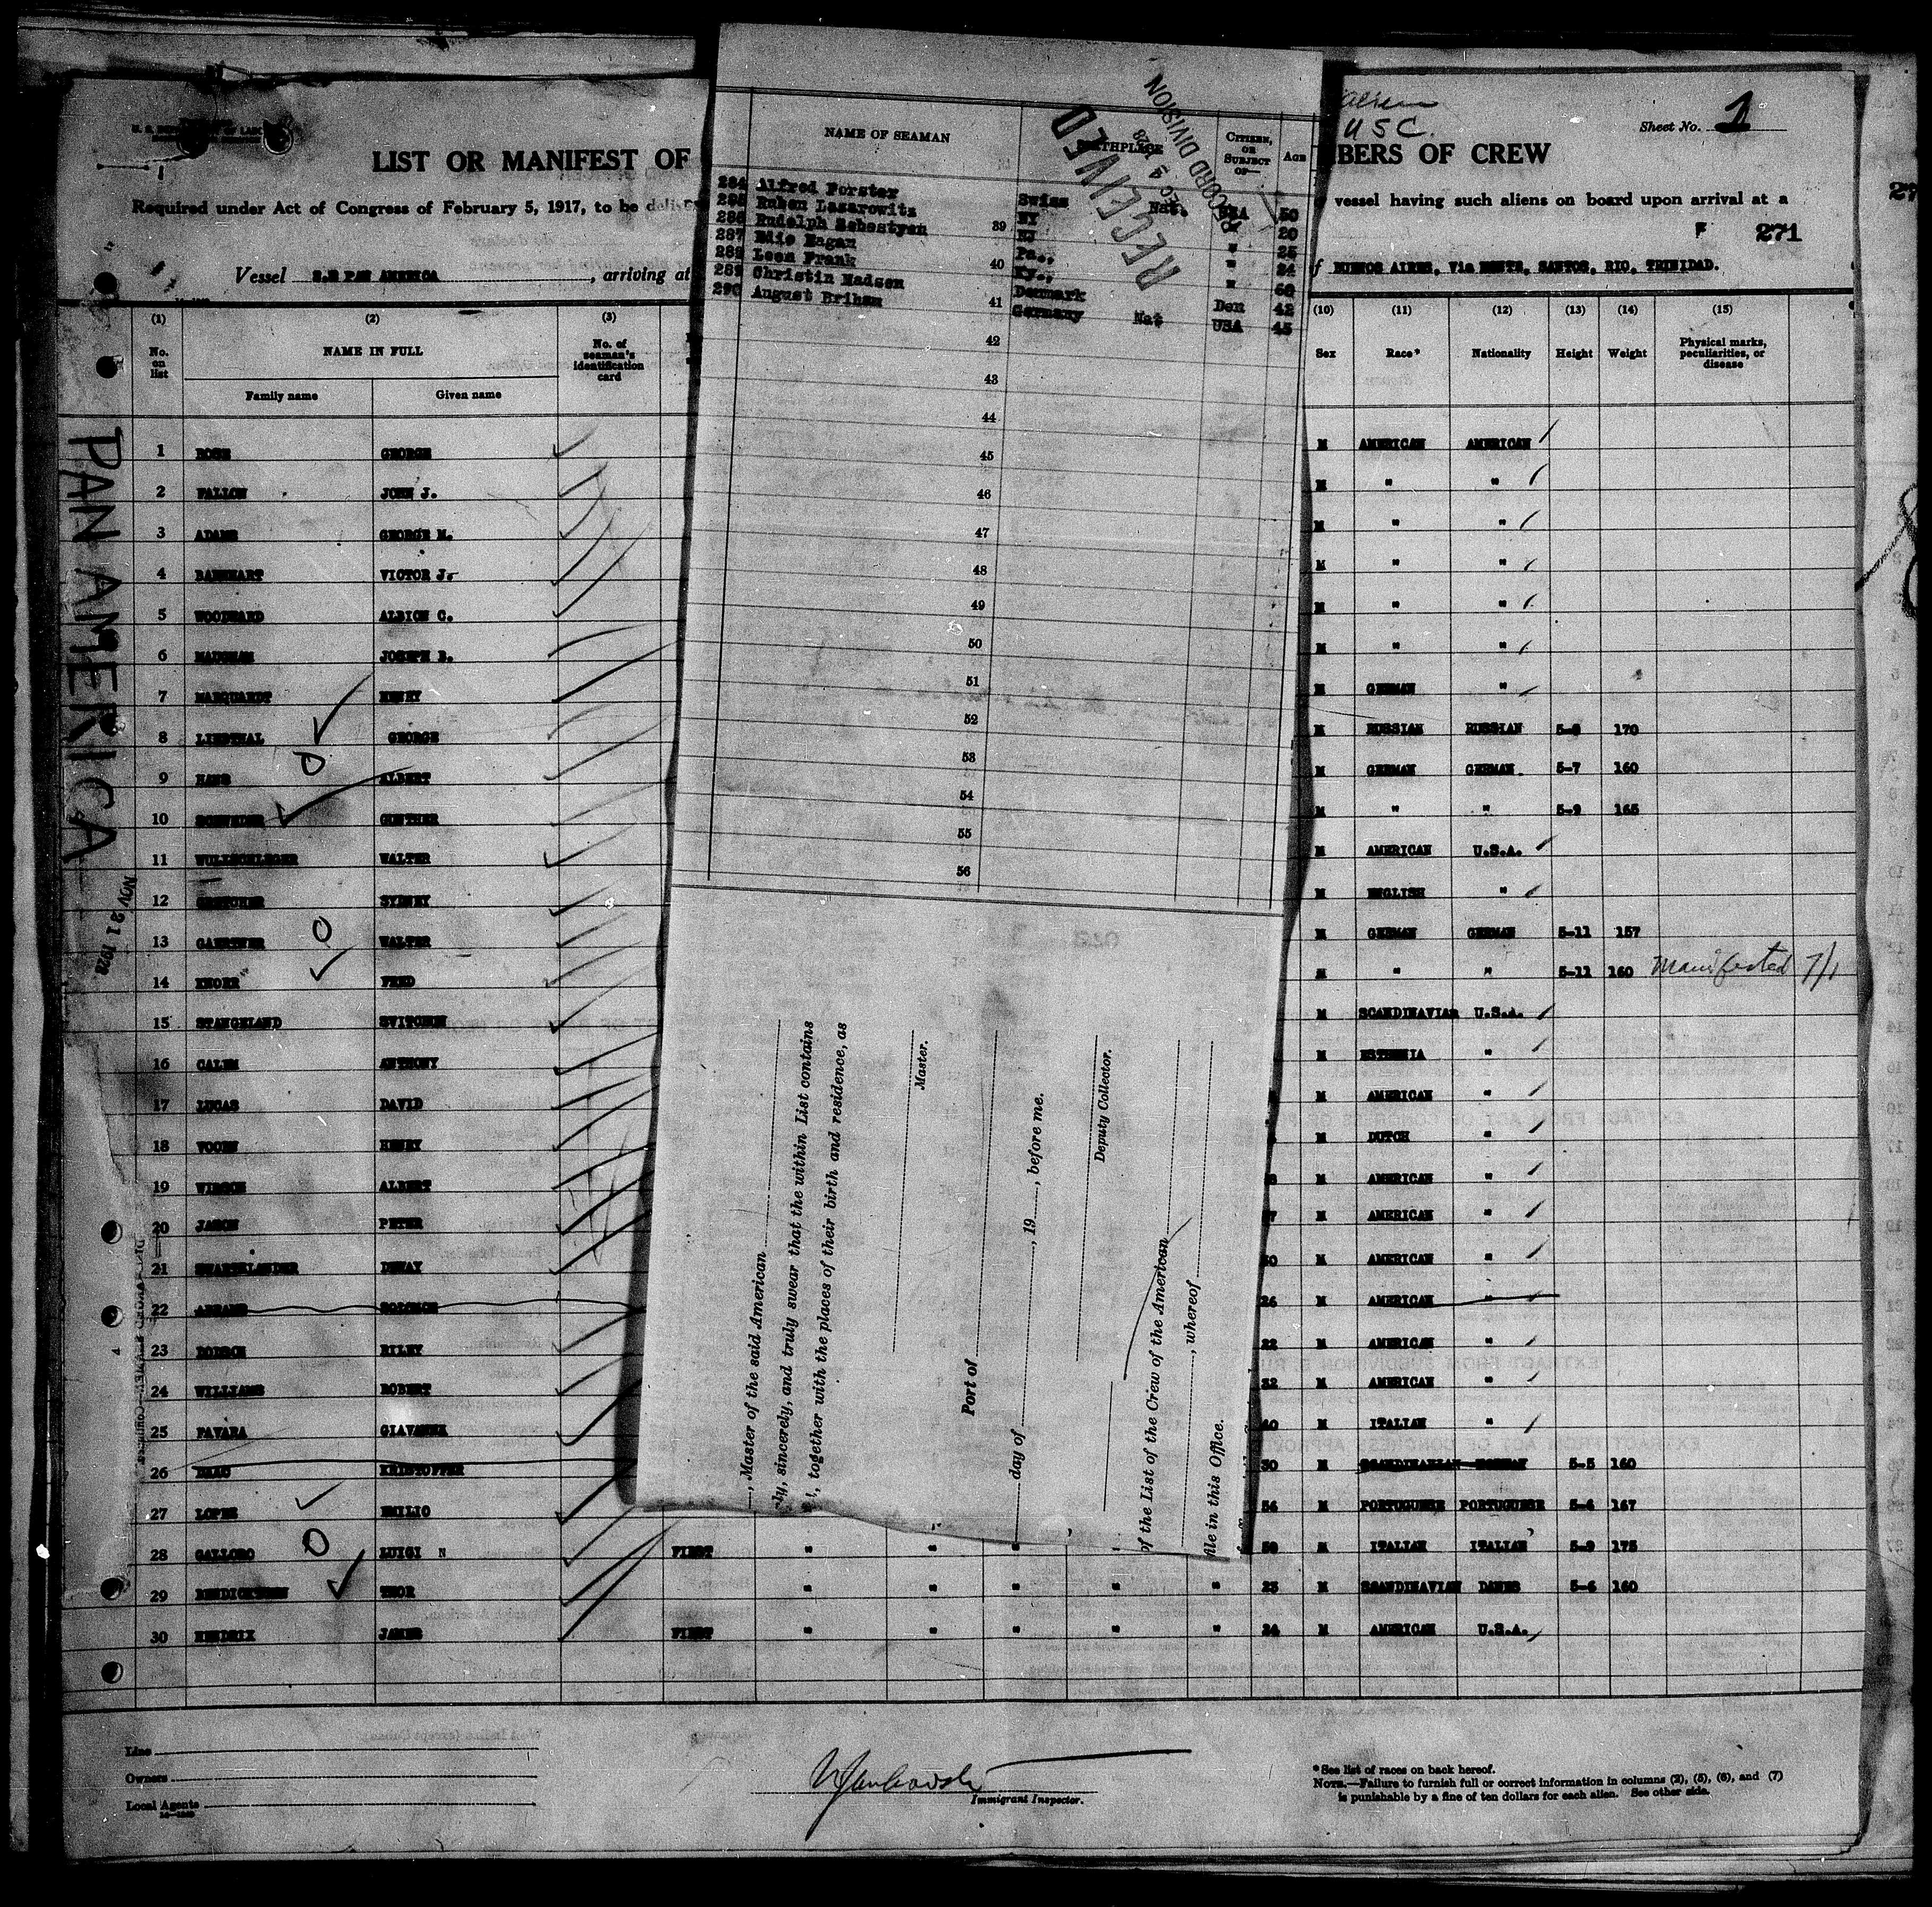 Sheet No. 1
alien
USC.
LIST OR MANIFEST OF
BERS OF CREW
Required under Act of Congress of February 5, 1917, to be
vessel having such aliens on board upon arrival at a
F 271
Vessel S.S PAN AMERICA, arriving at
BUENOS AIRES, Via MONTE, SANTOS, RIO, TRINIDAD.
NAME OF SEAMAN
BIRTHPLACE
CITIZEN, OR SUBJECT OF—
AGE
RECEIVED
RECORD DIVISION
284 Alfred Forster Swiss Nat. USA 50
285 Ruben Lazarowitz NY " 20
286 Rudolph Sebestyen NJ " 25
287 Edie Hagan Pa., " 24
288 Leon Frank Ky., " 60
289 Christin Madsen Denmark Den 42
290 August Briham Germany Nat USA 45
39
40
41
42
43
44
45
46
47
48
49
50
51
52
53
54
55
56
(1) (2) (3) (10) (11) (12) (13) (14) (15)
No. on list
NAME IN FULL
Family name
Given name
No. of seaman's identification card
Sex
Race*
Nationality
Height
Weight
Physical marks, peculiarities, or disease
PAN AMERICA
NOV 21 1928
1 ROSE GEORGE M AMERICAN AMERICAN
2 FALLON JOHN J. M " "
3 ADAMS GEORGE M. M " "
4 BARNHART VICTOR J. M " "
5 WOODWARD ALBION C. M " "
6 JOSEPH B. M " "
7 MARQUARDT HENRY M GERMAN "
8 LINDTHAL GEORGE M RUSSIAN RUSSIAN 5-8 170
9 HANS ALBERT M GERMAN GERMAN 5-7 160
10 GUNTHER M " " 5-9 165
11 WULLSCHLEGER WALTER M AMERICAN U.S.A.
12 SYDNEY M ENGLISH "
13 GAERTNER WALTER M GERMAN GERMAN 5-11 157
14 KNORR FRED M " " 5-11 160 Manifested
15 STANGELAND M SCANDINAVIAN U.S.A.
16 CALEM ANTHONY M ESTHONIA "
17 LUCAS DAVID M AMERICAN "
18 HENRY M DUTCH "
19 ALBERT M AMERICAN "
20 JASON PETER M AMERICAN "
21 SWARTSLANDER DEWAY M AMERICAN "
22 ABRAMS SOLOMON 26 M AMERICAN "
23 DODSON RILEY 22 M AMERICAN "
24 WILLIAMS ROBERT 32 M AMERICAN "
25 FAVARA 40 M ITALIAN "
26 KRISTOFFER 30 M SCANDINAVIAN NORWAY 5-5 160
27 LOPES EMILIO 54 M PORTUGUESE PORTUGUESE 5-4 167
28 GALLORO LUIGI N FIRST " " " " " 50 M ITALIAN ITALIAN 5-9 175
29 BENDICKTSEN THOR " " " " " 23 M SCANDINAVIAN DANES 5-6 160
30 HENDRIX JAMES FIRST " " " " " 24 M AMERICAN U.S.A.
, Master of the said American
ly, sincerely, and truly swear that the within List contains
, together with the places of their birth and residence, as
Master.
Port of
day of , 19 , before me.
Deputy Collector.
of the List of the Crew of the American
, whereof
file in this Office.
Line
Owners
Local Agents
Immigrant Inspector.
*See list of races on back hereof.
NOTE.—Failure to furnish full or correct information in columns (2), (5), (6), and (7)
is punishable by a fine of ten dollars for each alien. See other side.